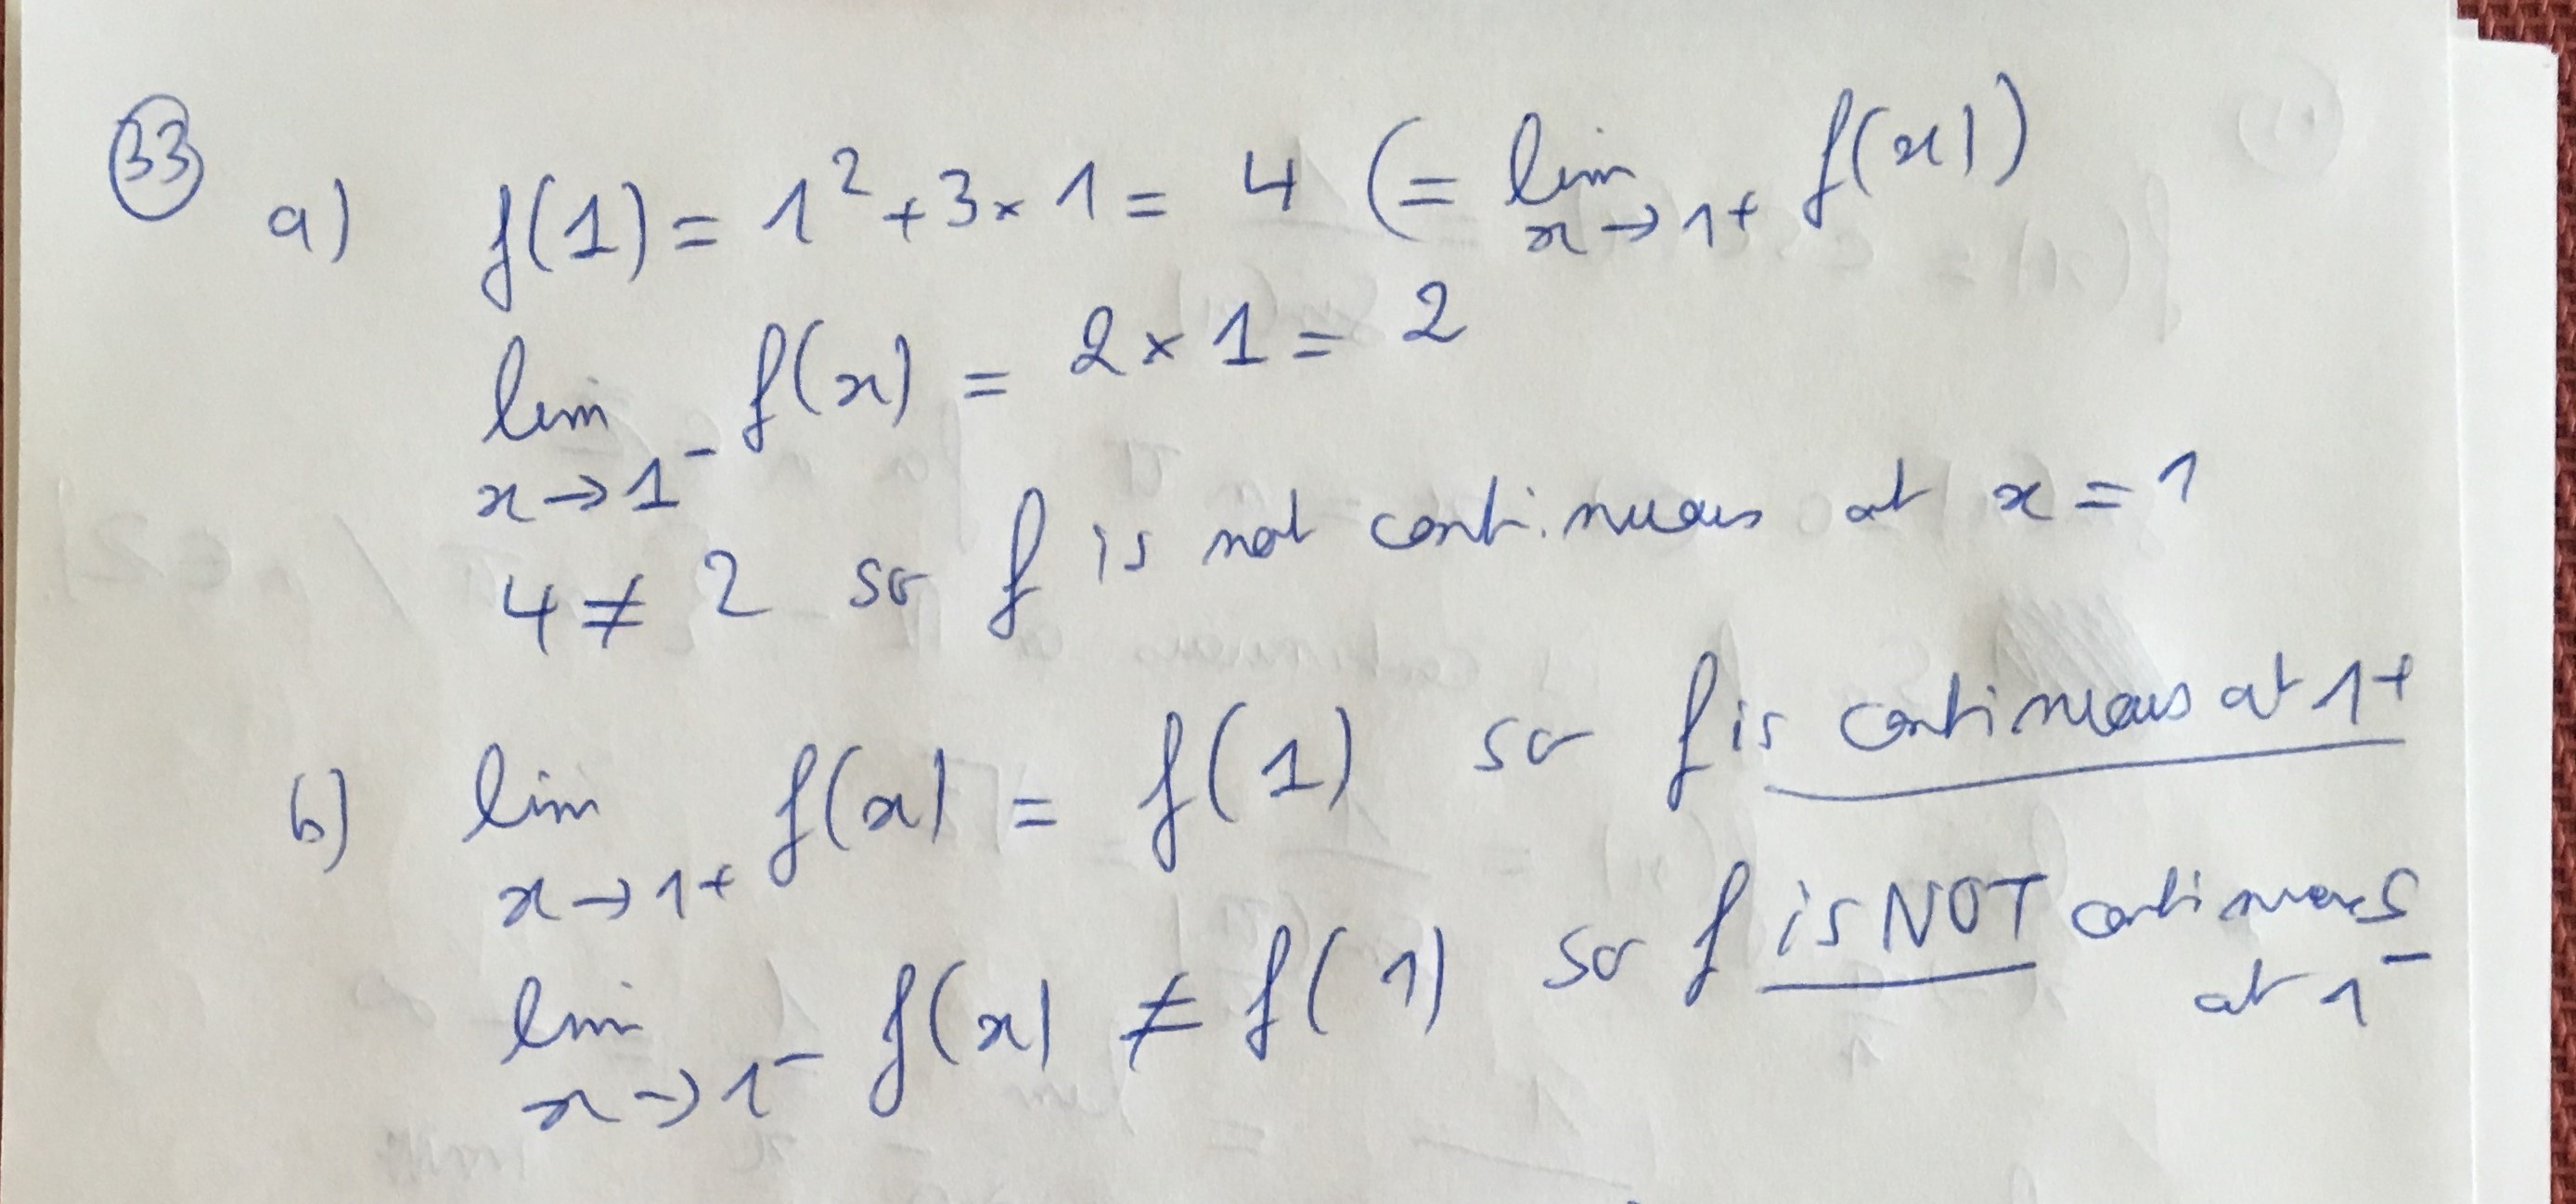 33
a) f(1) = 1² + 3 × 1 = 4 (= lim x→1+ f(x))
lim x→1⁻ f(x) = 2 × 1 = 2
4 ≠ 2 so f is not continuous at x = 1
b) lim x→1+ f(x) = f(1) so f is continuous at 1+
lim x→1⁻ f(x) ≠ f(1) so f is NOT continuous
at 1⁻